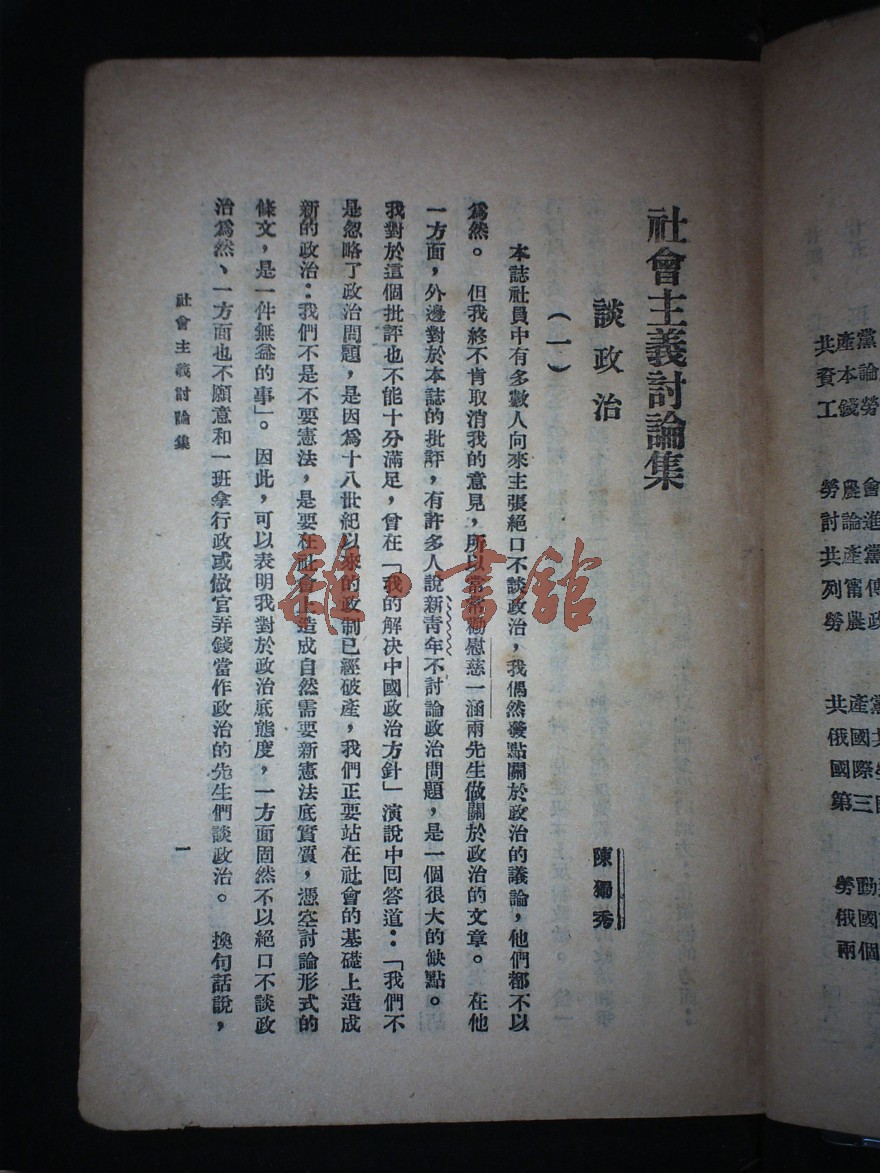 社會主義討論集
談政治
陳獨秀
（一）
本誌社員中有多數人向來主張絕口不談政治，我偶然發點關於政治的議論，他們都不以
爲然。但我終不肯取消我的意見，所以常常勸慰慈一涵兩先生做關於政治的文章。在他
一方面，外邊對於本誌的批評，有許多人說新靑年不討論政治問題，是一個很大的缺點。
我對於這個批評也不能十分滿足，曾在「我的解决中國政治方針」演說中回答道：「我們不
是忽略了政治問題，是因爲十八世紀以來的政制已經破產，我們正要站在社會的基礎上造成
新的政治：我們不是不要憲法，是要在社會上造成自然需要新憲法底實質，憑空討論形式的
條文，是一件無益的事」。因此，可以表明我對於政治底態度，一方面固然不以絕口不談政
治爲然、一方面也不願意和一班拿行政或做官弄錢當作政治的先生們談政治。換句話說，
社會主義討論集
一
共產黨
資本論
工錢勞
勞農會
討論進
共產黨
列甯傳
勞農政
共產黨
俄國共
國際勞
第三國
勞動
俄國
兩個
雜·書館